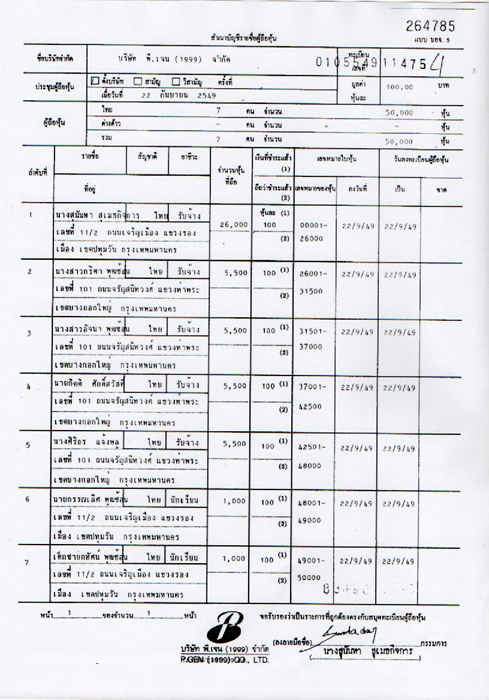 264785
สำเนาบัญชีรายชื่อผู้ถือหุ้น
แบบ บอจ. 5
ชื่อบริษัทจำกัด บริษัท พี.เจน (1999) จำกัด ทะเบียนเลขที่ 0105549114754
ประชุมผู้ถือหุ้น ตั้งบริษัท สามัญ วิสามัญ ครั้งที่ มูลค่าหุ้นละ 100.00 บาท
เมื่อวันที่ 22 กันยายน 2549
ผู้ถือหุ้น ไทย 7 คน จำนวน 50,000 หุ้น
ต่างด้าว - คน จำนวน - หุ้น
รวม 7 คน จำนวน 50,000 หุ้น
ลำดับที่ รายชื่อ สัญชาติ อาชีวะ จำนวนหุ้นที่ถือ เงินที่ชำระแล้ว (1) เลขหมายใบหุ้น วันลงทะเบียนผู้ถือหุ้น
ที่อยู่ ถือว่าชำระแล้ว (2) เลขหมายของหุ้น ลงวันที่ เป็น ขาด
หุ้นละ (1)
1 นางสุนันทา สุเมธกิจการ ไทย รับจ้าง 26,000 100 00001- 22/9/49 22/9/49
เลขที่ 11/2 ถนนเจริญเมือง แขวงรอง (2) 26000
เมือง เขตปทุมวัน กรุงเทพมหานคร
2 ไทย รับจ้าง 5,500 100 (1) 26001- 22/9/49 22/9/49
เลขที่ 101 ถนนจรัญสนิทวงศ์ แขวงท่าพระ (2) 31500
เขตบางกอกใหญ่ กรุงเทพมหานคร
3 ไทย รับจ้าง 5,500 100 (1) 31501- 22/9/49 22/9/49
เลขที่ 101 ถนนจรัญสนิทวงศ์ แขวงท่าพระ (2) 37000
เขตบางกอกใหญ่ กรุงเทพมหานคร
4 นายกิตติ ศักดิ์สวัสดิ์ ไทย รับจ้าง 5,500 100 (1) 37001- 22/9/49 22/9/49
เลขที่ 101 ถนนจรัญสนิทวงศ์ แขวงท่าพระ (2) 42500
เขตบางกอกใหญ่ กรุงเทพมหานคร
5 นางศิริอร แจ้งพลู ไทย รับจ้าง 5,500 100 (1) 42501- 22/9/49 22/9/49
เลขที่ 101 ถนนจรัญสนิทวงศ์ แขวงท่าพระ (2) 48000
เขตบางกอกใหญ่ กรุงเทพมหานคร
6 ไทย นักเรียน 1,000 100 (1) 48001- 22/9/49 22/9/49
เลขที่ 11/2 ถนนเจริญเมือง แขวงรอง (2) 49000
เมือง เขตปทุมวัน กรุงเทพมหานคร
7 ไทย นักเรียน 1,000 100 (1) 49001- 22/9/49 22/9/49
เลขที่ 11/2 ถนนเจริญเมือง แขวงรอง (2) 50000
เมือง เขตปทุมวัน กรุงเทพมหานคร
หน้า 1 ของจำนวน 1 หน้า
ขอรับรองว่าเป็นรายการที่ถูกต้องตรงกับสมุดทะเบียนผู้ถือหุ้น
บริษัท พี.เจน (1999) จำกัด (ลงลายมือชื่อ) กรรมการ
P.GEN (1999) CO., LTD. (นางสุนันทา สุเมธกิจการ)